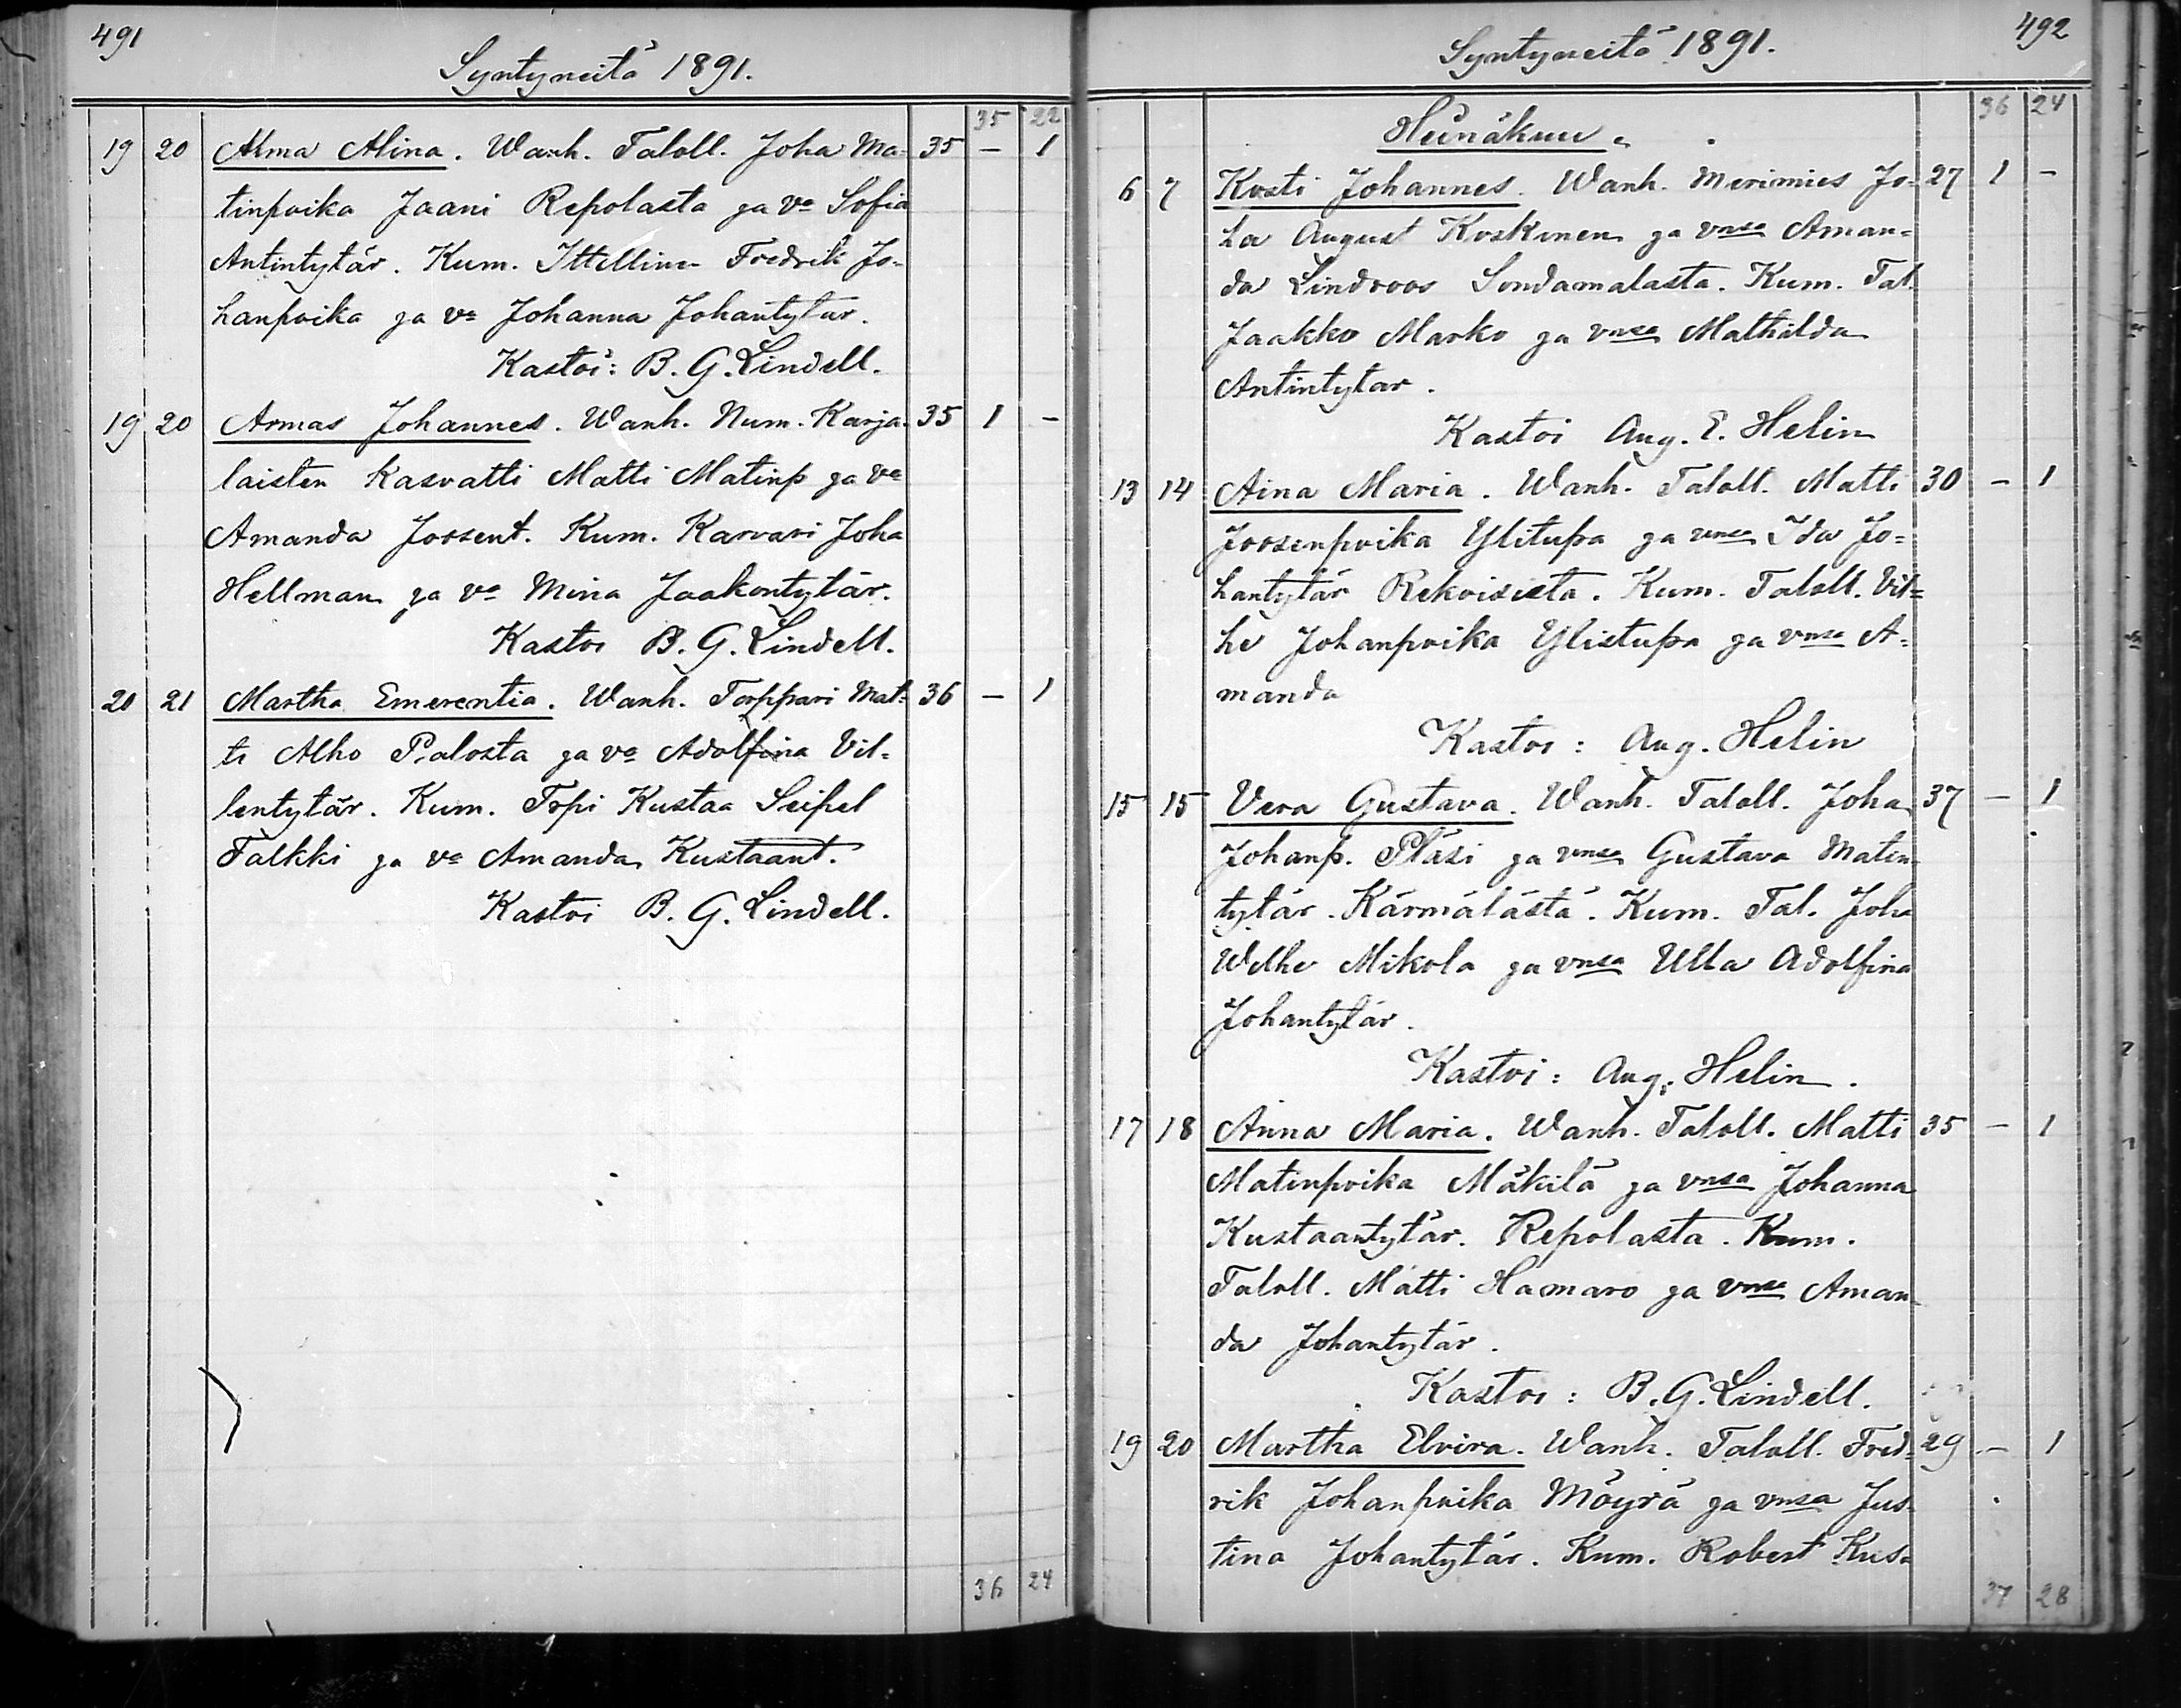 491
Syntyneitä 1891.
35 22
19 20 Alma Alina. Wanh. Taloll. Joha Ma- 35 – 1
tinpoika Jaani Repolasta ja vo Sofia
Antintytär. Kum. Ittellinen Fredrik Jo-
hanpoika ja vo Johanna Johantytär.
Kastoi: B. G. Lindell.
19 20 Armas Johannes. Wanh. Num. Karja- 35 1 –
laisten Kasvatti Matti Matinp ja vo
Amanda Joosent. Kum. Karvari Joha
Hellman ja vo Mina Jaakontytär.
Kastoi B. G. Lindell.
20 21 Martha Emerentia. Wanh. Torppari Mat- 36 – 1
ti Alho Palosta ja vo Adolfina Vil-
lentytär. Kum. Topi Kustaa Seipel
Falkki ja vo Amanda Kustaant.
Kastoi B. G. Lindell.
36 24
492
Syntyneitä 1891.
36 24
Heinäkuu
6 7 Kosti Johannes. Wanh. Merimies Jo- 27 1 –
ha August Koskinen ja vnsa Aman-
da Lindroos Sondamalasta. Kum. Tal.
Jaakko Marko ja vnsa Mathilda
Antintytar.
Kastoi Aug. E. Helin
13 14 Aina Maria. Wanh. Taloll. Matti 30 – 1
Joosenpoika Ylitupa ja vnsa Ida Jo=
hantytär Rekoisista. Kum. Taloll. Vil=
he Johanpoika Ylistupa ja vnsa A-
manda
Kastoi: Aug. Helin
15 15 Vera Gustava. Wanh. Taloll. Joha 37 – 1
Johanp. Pläsi ja vnsa Gustava Matin-
tytär. Kärmälästä. Kum. Tal. Joha
Wilhe Mikola ja vnsa Ulla Adolfina
Johantytär.
Kastoi: Aug. Helin.
17 18 Anna Maria. Wanh. Taloll. Matti 35 – 1
Matinpoika Mäkilä ja vnsa Johanna
Kustaantytär. Repolasta. Kum.
Taloll. Matti Hamaro ja vnsa Aman-
da Johantytär.
Kastoi: B. G. Lindell.
19 20 Martha Elvira. Wanh. Taloll. Fred- 29 – 1
rik Johanpoika Möyrä ja vnsa Jus-
tina Johantytär. Kum. Robert Kus-
37 28